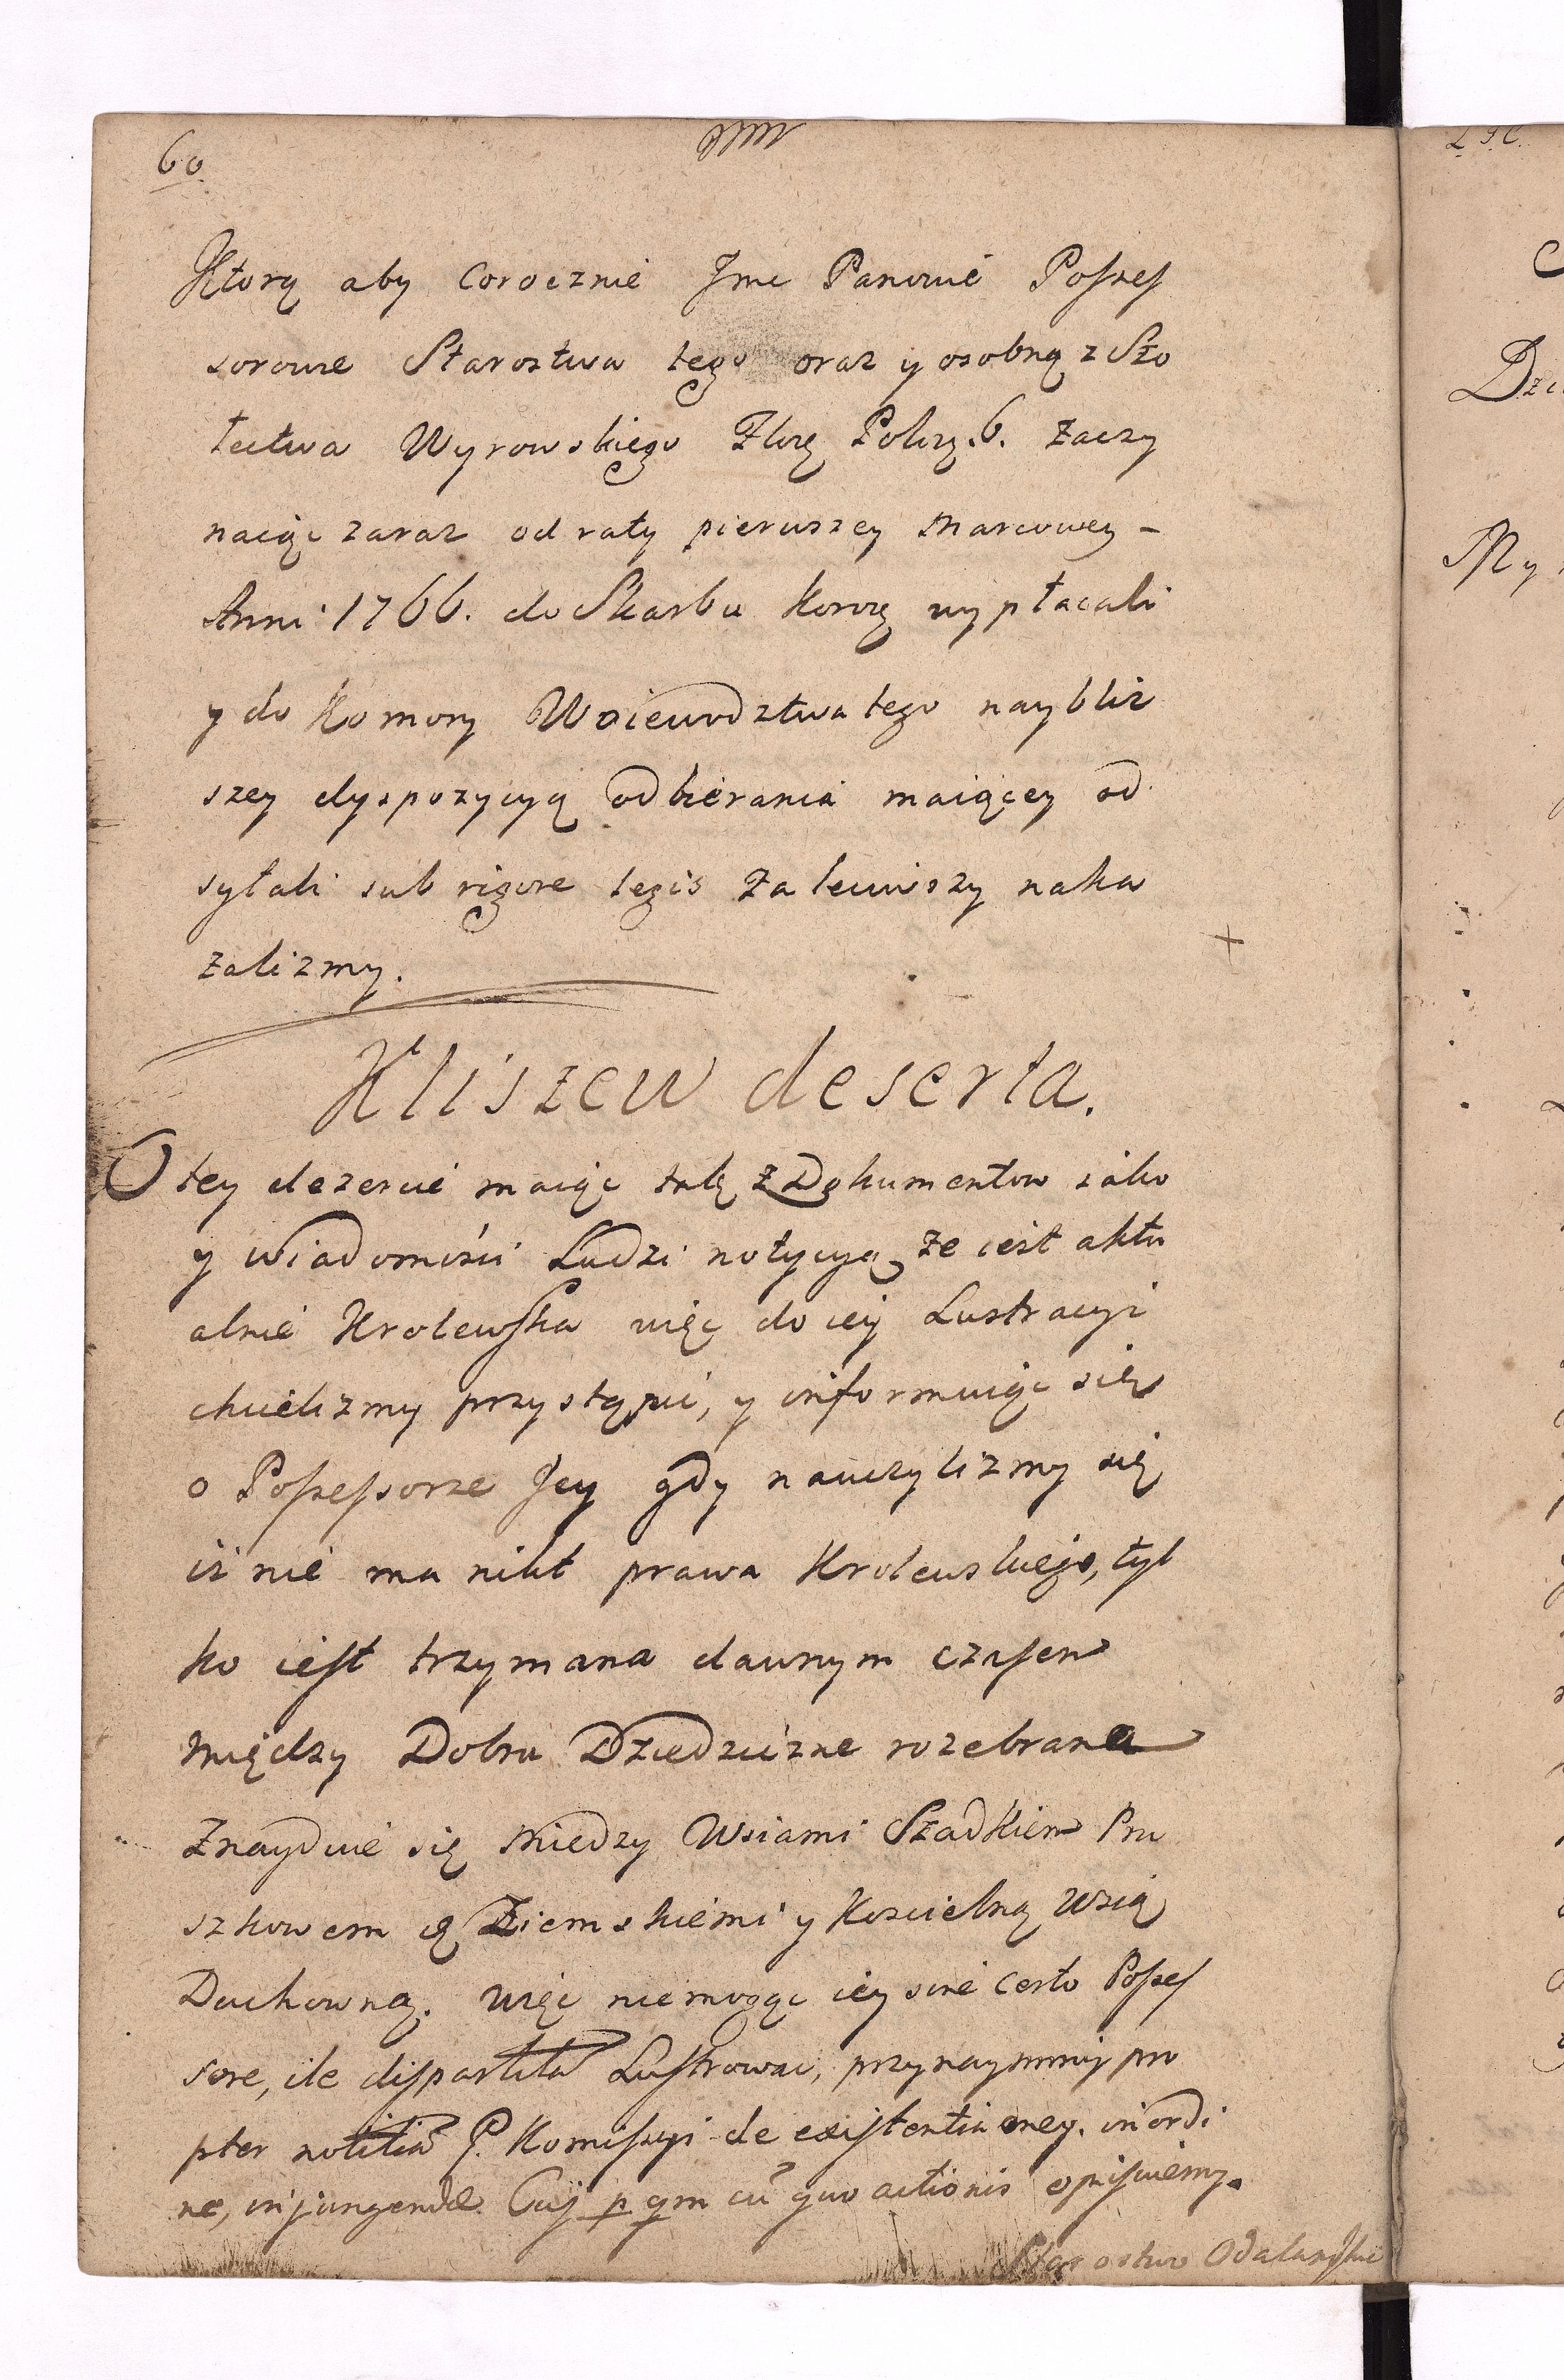 60.
Ktorą aby corocznie Jmc Panowie Posses
sorowie Starostwa tego oraz y osobną z Szo
łectwa Wyrowskiego Kwartę Zaczy
nając zaraz od raty pierwszey Marcowey –
Anni 1766. do Skarbu Koroẏ wypłacali
y do Komory Woiewodztwa tego naybliż
szey dyspozycyą odbierania maiącey od
syłali sub rigore legis zaleciwszy naka
zalizmy.
Kliszew deserta.
O tey dezercie maiąc tak z Dokumentow iako
y wiadomości Ludzi notycyą, że iest aktu
alnie Krolewska więc do iey Lustracyi
chcielizmy przystąpić, y informuiąc się
o Possessorze Jey gdy nauczylizmy się
iż nie ma nikt prawa Krolewskiego, tyl
ko iest trzymana dawnym czasem
między Dobra Dziedziczne rozebrana
Znayduie się miedzy Wsiami Szadkiem Pru
szkowem Ziemskiemi y Koscielną Wsią
Duchowną. więc niemogąc iey sine certo Posses
sore, ile dispartita Lustrować, przynaymniy pro
pter notitia P. Komissyi de existentia oney. in ordi
ne, injungendæ Cuij quo actionis opisuiemy.
Starostwo Odalanskie